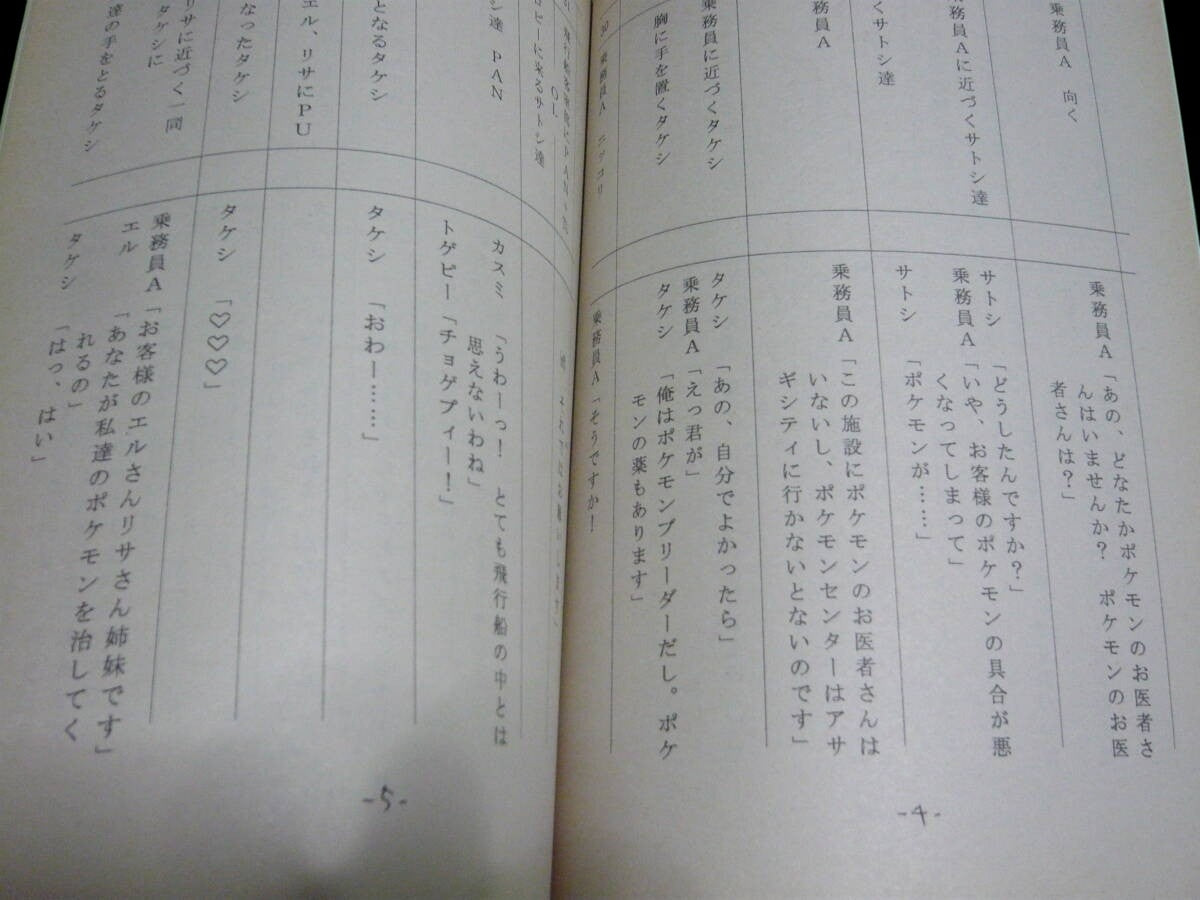 乗務員A　向く
乗務員A「あの、どなたかポケモンのお医者さ
んはいませんか？　ポケモンのお医
者さんは？」
乗務員Aに近づくサトシ達
サトシ　「どうしたんですか？」
乗務員A「いや、お客様のポケモンの具合が悪
くなってしまって」
くサトシ達
サトシ　「ポケモンが……」
乗務員A
乗務員A「この施設にポケモンのお医者さんは
いないし、ポケモンセンターはアサ
ギシティに行かないとないのです」
乗務員に近づくタケシ
胸に手を置くタケシ
タケシ　「あの、自分でよかったら」
乗務員A「えっ君が」
タケシ　「俺はポケモンブリーダーだし。ポケ
モンの薬もあります」
乗務員A　ニッコリ
乗務員A「そうですか！
-4-
OL
ロビーに来るサトシ達
シ達　PAN
カスミ　「うわーっ！　とても飛行船の中とは
思えないわね」
トゲピー「チョゲプィー！」
となるタケシ
タケシ　「おわー……」
エル、リサにPU
なったタケシ
タケシ　「♡♡♡」
リサに近づく一同
タケシに
達の手をとるタケシ
乗務員A「お客様のエルさんリサさん姉妹です」
エル　　「あなたが私達のポケモンを治してく
れるの」
タケシ　「はっ、はい」
-5-